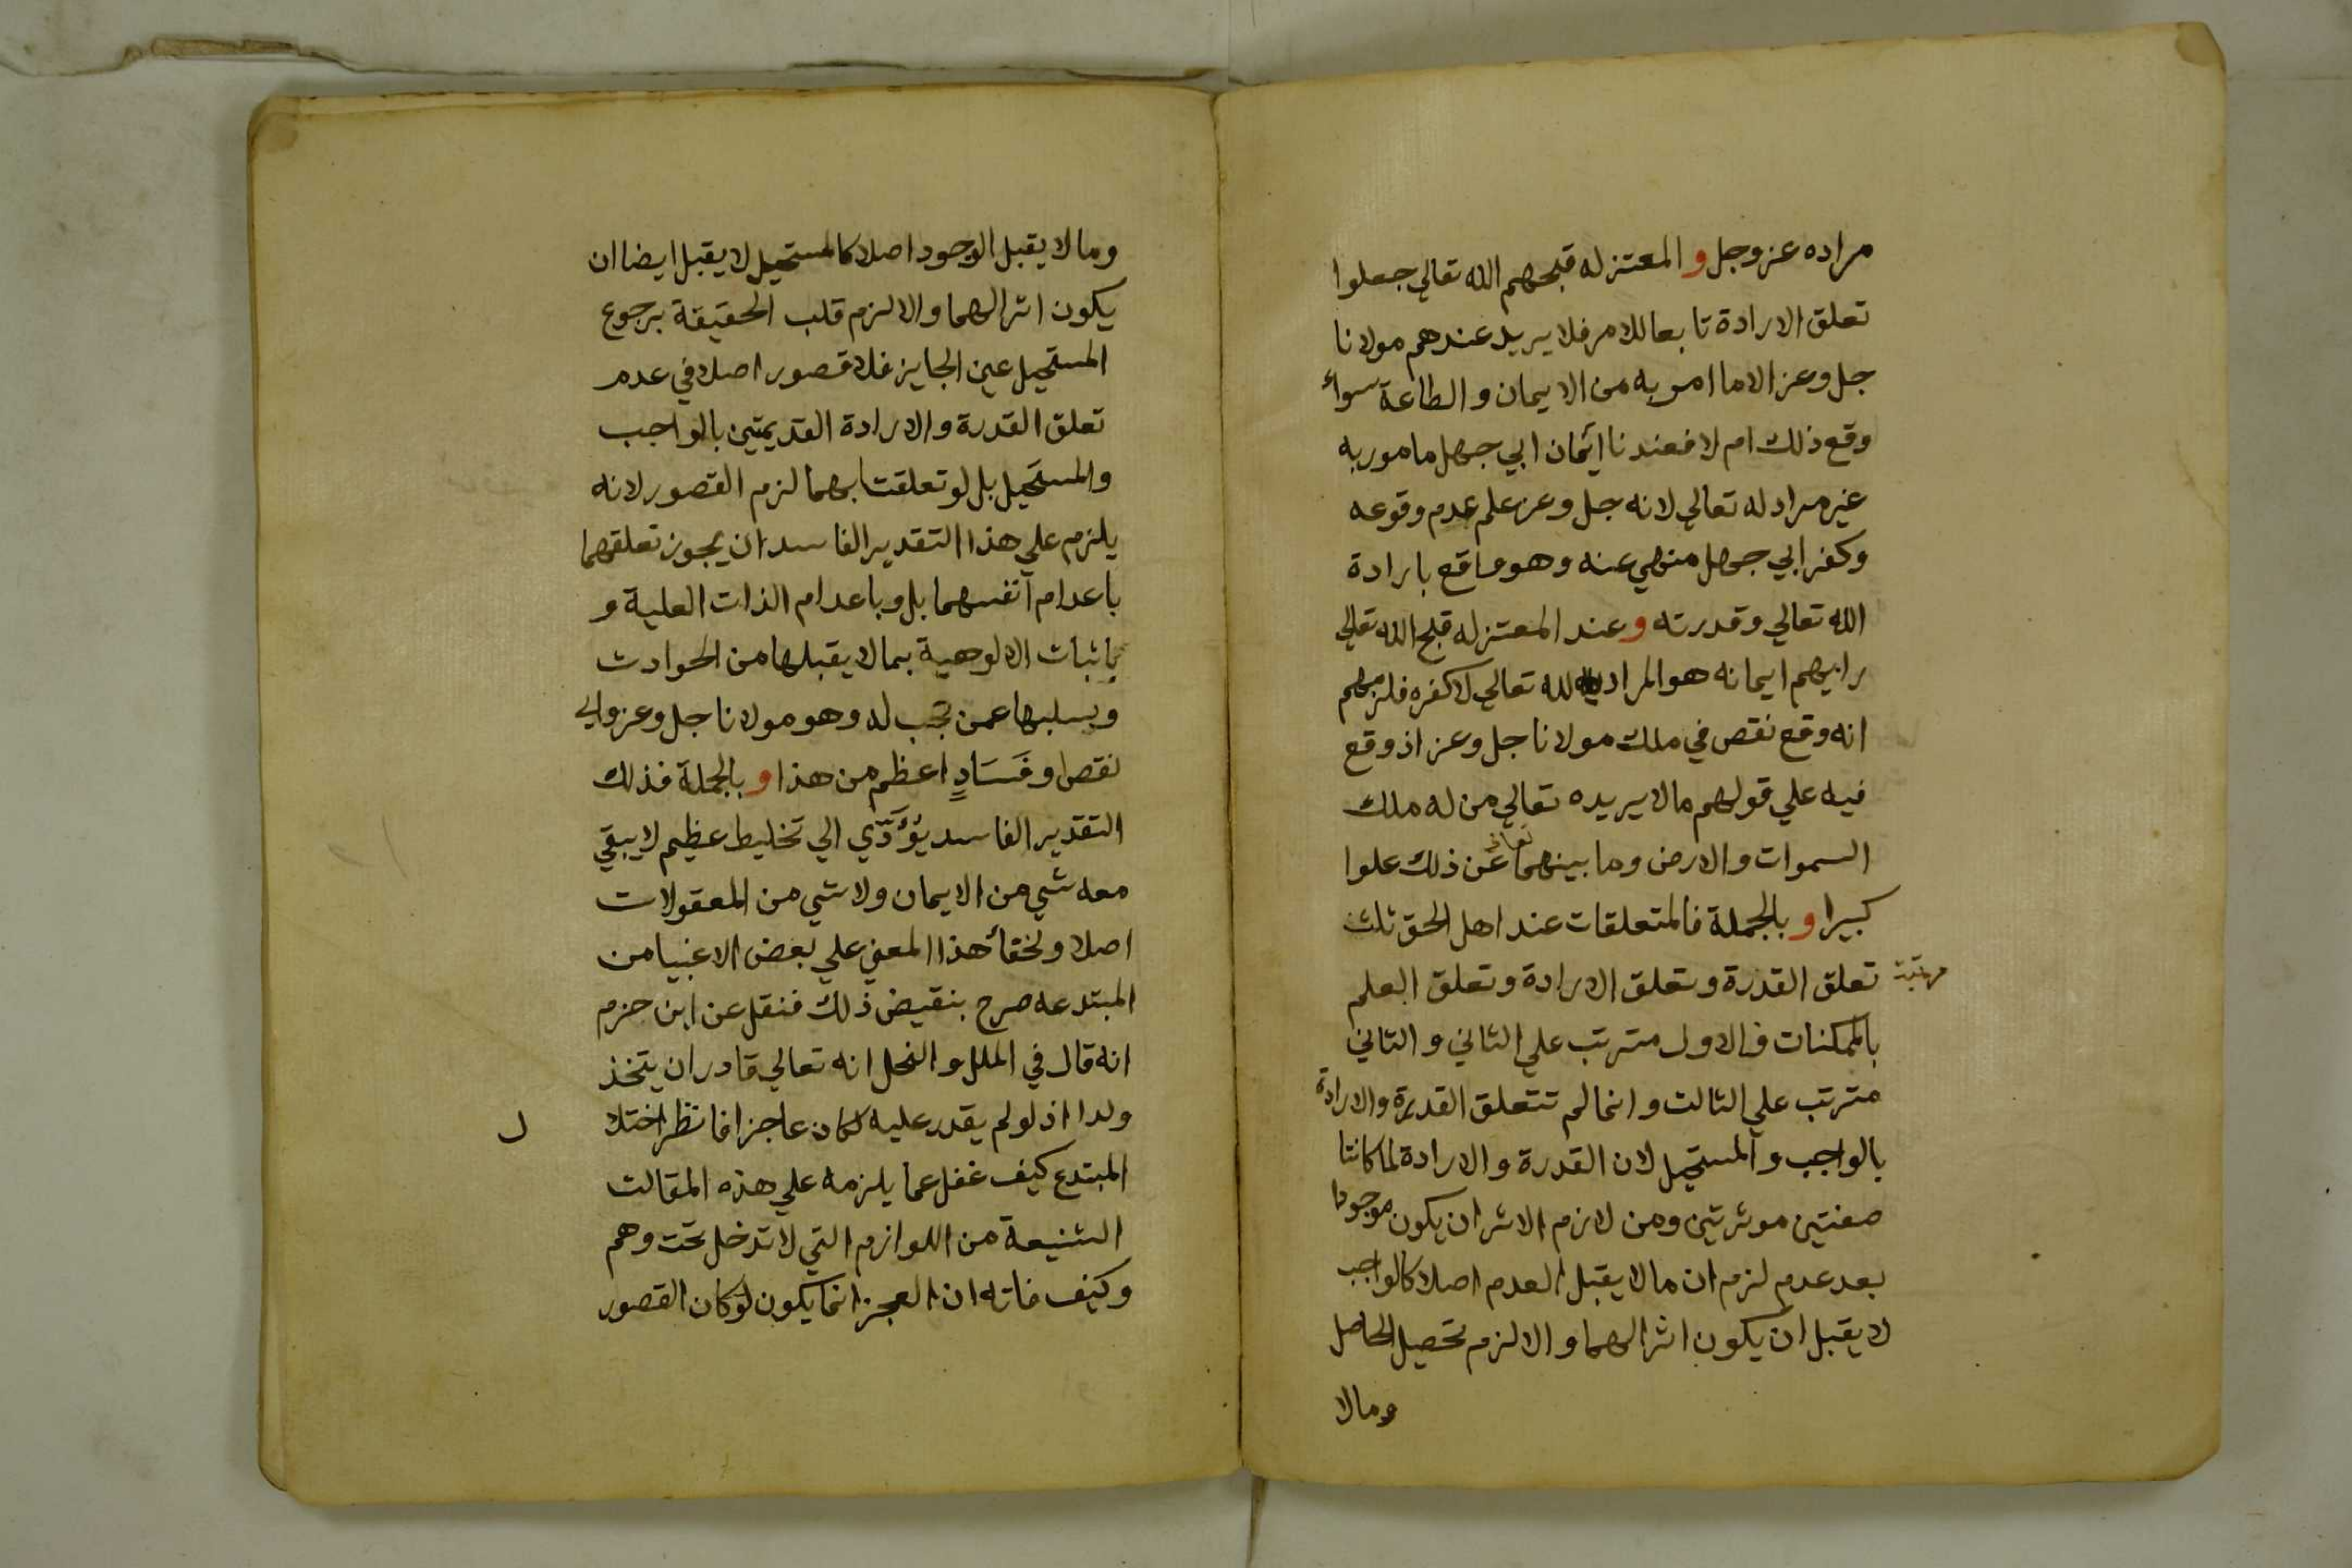 مراده عز وجل و المعتزله قبحهم الله تعالي جعلوا
تعلق الارادة تابعا للامر فلا يريد عندهم مولانا
جل وعز الا ما امر به من الايمان و الطاعة سواء
وقع ذلك ام لا فعندنا ايمان ابي جهل مامور به
غير مراد له تعالي لانه جل وعز علم عدم وقوعه
وكفر ابي جهل منهي عنه وهو واقع بارادة
الله تعالي وقدرته و عند المعتزله قبح الله تعالي
رايهم ايمانه هو المراد لله تعالي لا كفره فلزمهم
انه وقع نقص في ملك مولانا جل وعز اذ وقع
فيه علي قولهم ما لا يريده تعالي من له ملك
السموات والارض وما بينهما تعالي عن ذلك علوا
كبيرا و بالجملة فالمتعلقات عند اهل الحق ثلث
مرتبة تعلق القدرة وتعلق الارادة وتعلق العلم
بالممكنات فالاول مترتب علي الثاني و الثاني
مترتب علي الثالث و انما لم تتعلق القدرة والارادة
بالواجب و المستحيل لان القدرة و الارادة لما كانتا
صفتين موثرتين ومن لازم الاثر ان يكون موجودا
بعد عدم لزم ان ما لا يقبل العدم اصلا كالواجب
لا يقبل ان يكون اثرا لهما و الا لزم تحصيل الحاصل
وما لا
وما لا يقبل الوجود اصلا كالمستحيل لا يقبل ايضا ان
يكون اثرا لهما والا لزم قلب الحقيقة برجوع
المستحيل عين الجايز فلا قصور اصلا في عدم
تعلق القدرة والارادة القديمتين بالواجب
والمستحيل بل لو تعلقتا بهما لزم القصور لانه
يلزم علي هذا التقدير الفاسد ان يجوز تعلقهما
باعدام انفسهما بل وباعدام الذات العلية و
باثبات الالوهية بما لا يقبلها من الحوادث
وبسلبها عمن تجب له وهو مولانا جل وعز واي
نقص او فَسَادٍ اعظم من هذا و بالجملة فذلك
التقدير الفاسد يؤَدّي الي تخليط عظيم لا يبقي
معه شي من الايمان ولا شي من المعقولات
اصلا ولخفا هذا المعني علي بعض الاغبيا من
المبتدعه صرح بنقيض ذلك فنقل عن ابن حزم
انه قال في الملل و النحل انه تعالي قادر ان يتخذ
ولدا اذ لو لم يقدر عليه لكان عاجزا فانظر اختلا
ل
المبتدع كيف غفل عما يلزمه علي هذه المقالت
الشنيعة من اللوازم التي لا تدخل تحت وهم
وكيف فاته ان العجز انما يكون لو كان القصور